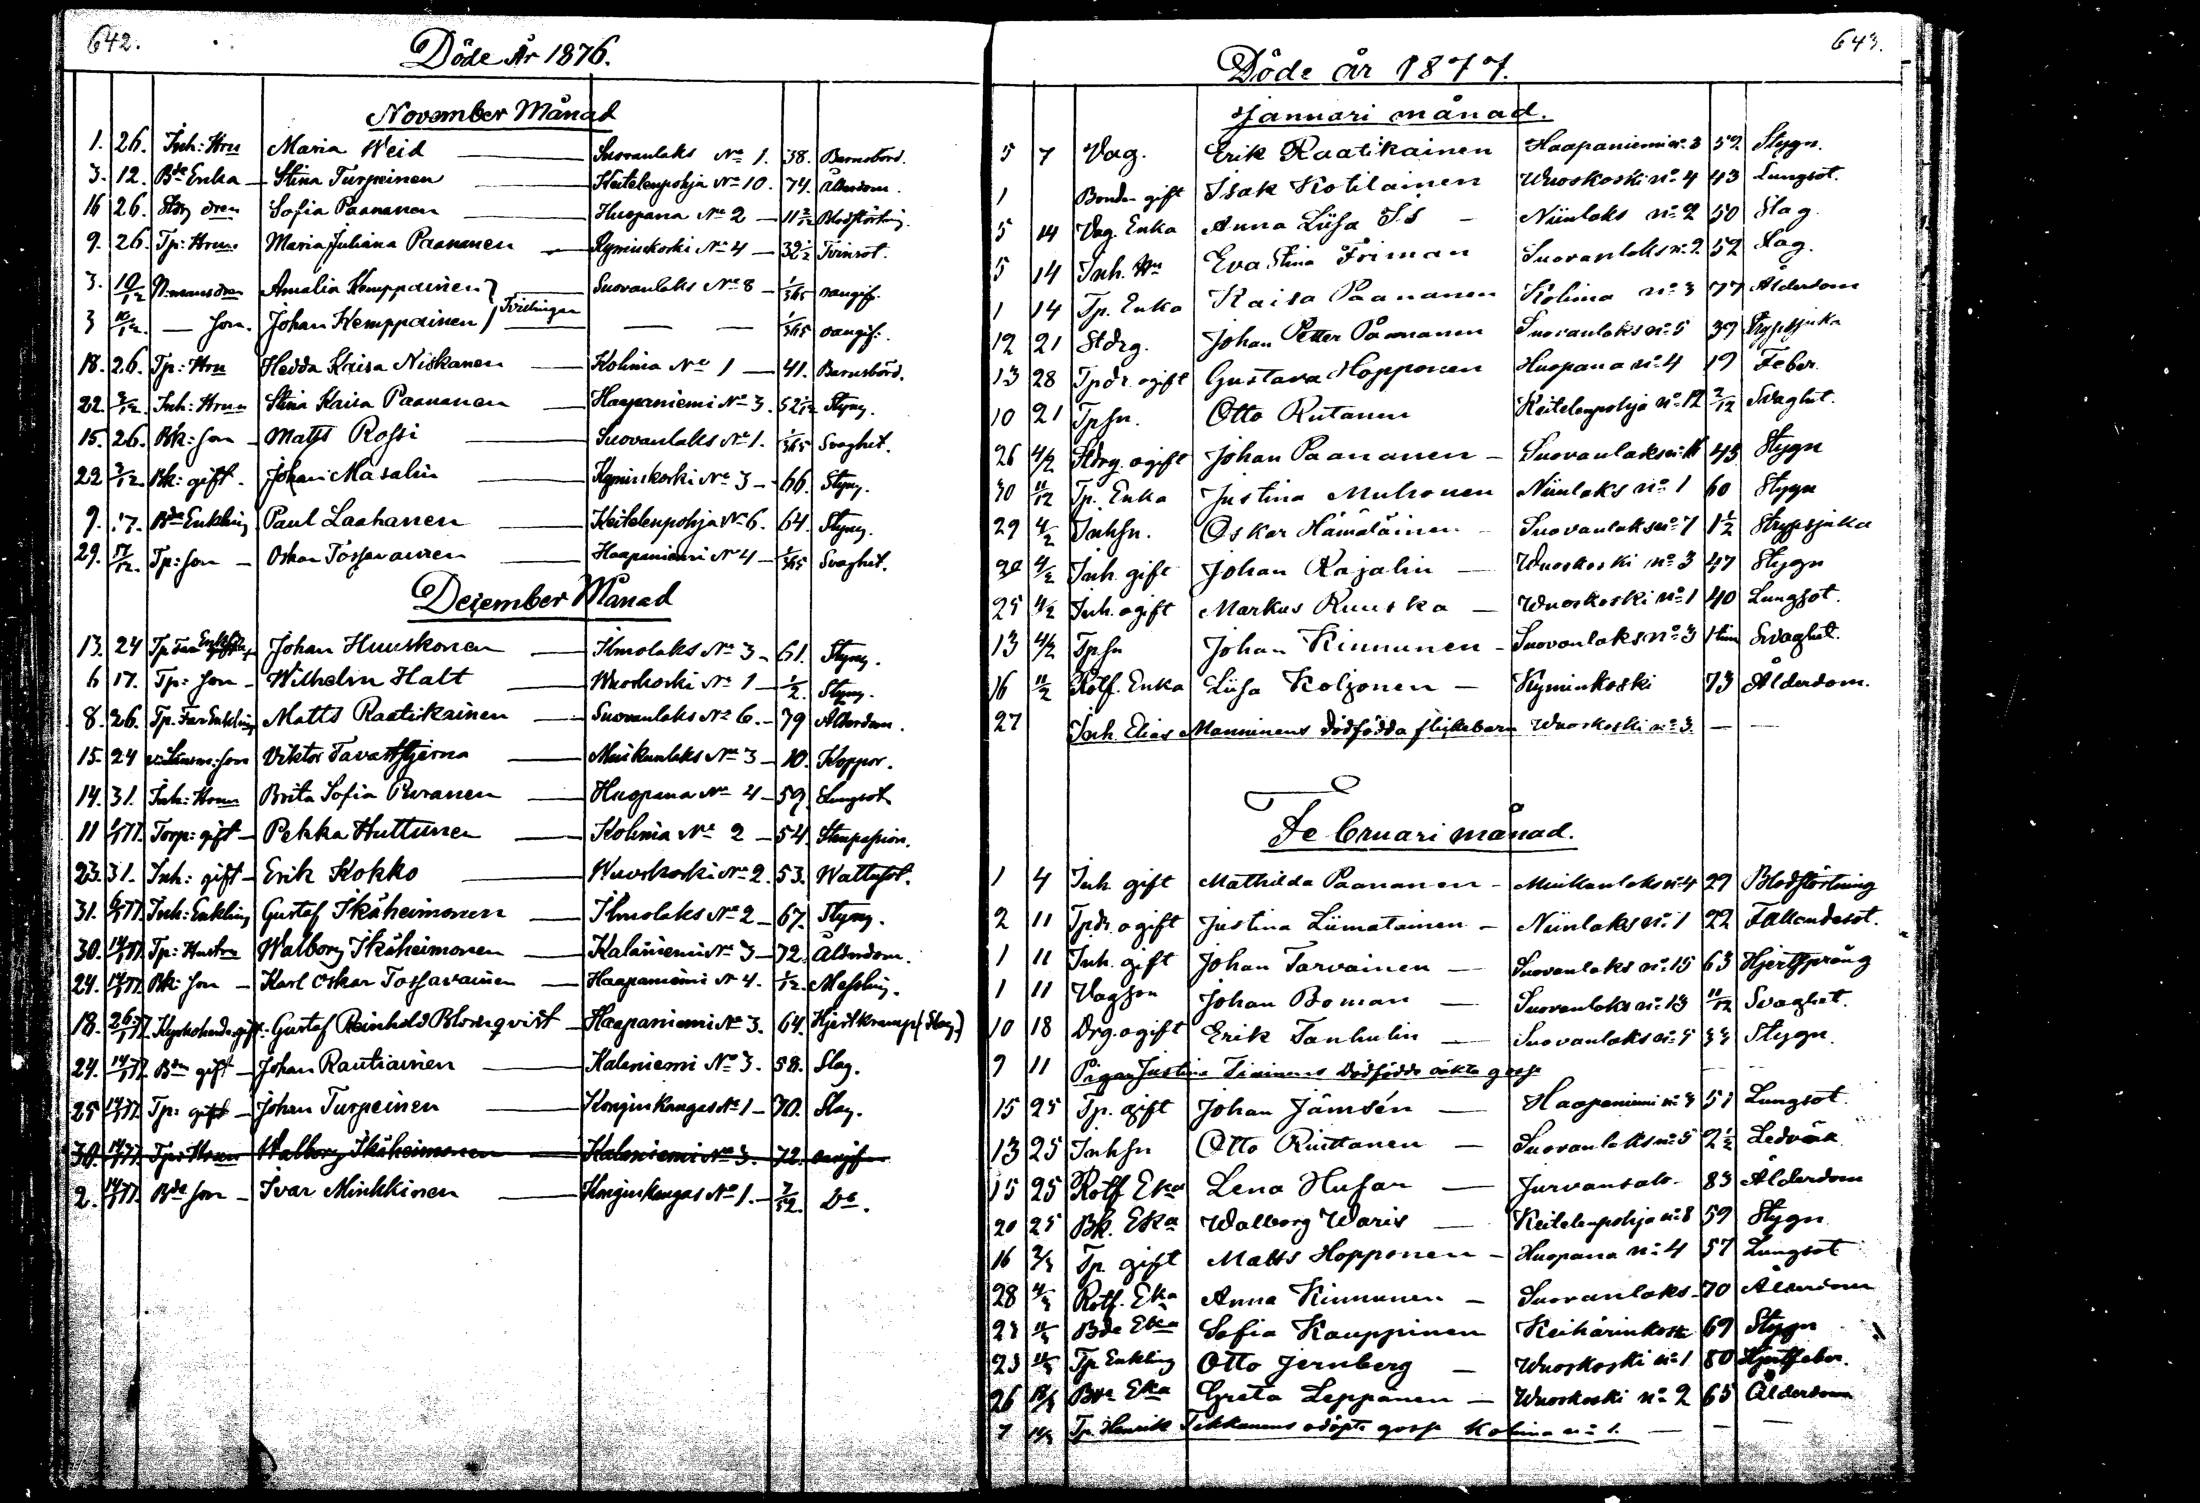 642.
Döde År 1876.
November Månad
1. 26. Inh: Hru Maria Weid Suovanlaks No 1. 38. Barnsbörd.
3. 12. Bde Enka Stina Turpeinen Keitelenpohja No 10. 74. Ålderdom.
16 26. Stdrg dren Sofia Paananen Huopana No 2 11 2/12 Blodstörtng.
9. 26. Tp: Hrun Maria Juliana Paananen Kyminkoski No 4 32 1/2 Tvinsot.
3. 10/12 N:mansdren Amalia Kemppainen } Tvillingar Suovanlaks No 8 1/365 oangif.
3 10/12. — Son. Johan Kemppainen — — 1/365 oangif.
18. 26. Tp: Hru Hedda Kaisa Niskanen Kolima No 1 41. Barnsbörd.
22. 3/12 Inh: Hrun Stina Kaisa Paananen Haapaniemi No 3. 52 1/12 Styng.
15. 26. Bk: son Matts Rossi Suovanlaks No 1. 1/365 Svaghet.
22 3/12. Bk: gift. Johan Masalin Kyminkoski No 3 66. Styng.
9. 17. Bde Enkling Paul Laahanen Keitelenpohja No 6. 64. Styng.
29. 17/12. Tp: son Oskar Tossavainen Haapaniemi No 4 1/365 Svaghet.
Dezember Månad
13. 24 Tp. Far Enkling Johan Huuskonen Ilmolaks No 3 61. Styng.
6 17. Tp: son Wilhelm Halt Wuoskoski No 1 1/2. Styng.
8. 26. Tp. Far Enkling Matts Raatikainen Suovanlaks No 6. 79 Ålderdom.
15. 24 v: Länsm: son Viktor Tavaststjerna Muikunlaks No 3 10. Koppor.
14. 31. Inh: Hrun Brita Sofia Puranen Huopana No 4 59. Lungsot
11 /77. Torp: gift Pekka Huttunen Kolima No 2 54. Stenpassion.
23. 31. Inh: gift Erik Kokko Wuoskoski No 2. 53. Wattusot.
31. 6/1 77. Inh: Enkling Gustaf Ikäheimonen Ilmolaks No 2 67. Styng.
30. 14/1 77. Tp: Hustru Walborg Ikäheimonen Kalaniemi No 3 72. Ålderdom.
24. 14/1 77. Bk: son Karl Oskar Tossavainen Haapaniemi No 4. 1/12. Messling.
18. 26/1 77. gift. Gustaf Reinhold Blomqvist Haapaniemi No 3. 64. Hjertkramp (Slag.)
24. 14/1 77. Bde gift Johan Rautiainen Kalaniemi No 3. 58. Slag.
25 14/1 77. Tp: gift Johan Turpeinen Konginkangas No 1 70. Slag.
30. 14/1 77. Tp: Hrun Walborg Ikäheimonen Kalaniemi No 3. 72. oangif
2. 14/1 77. Bde son Ivar Minkkinen Konginkangas No 1. 7/52. Do.
643.
Döde år 1877.
Januari månad.
5 7 Vag. Erik Raatikainen Haapaniemi no 3 52 Stygn.
1 Bonden gift Isak Kotilainen Wuoskoski no 4 43 Lungsot.
5 14 Vag. Enka Anna Liisa Niinlaks no 2 50 Slag.
5 14 Inh. Hru Eva Stina Friman Suovanlaks no 2 52 Slag.
1 14 Tp. Enka Kaisa Paananen Kolima no 3 77 Ålderdom
12 21 Stdrg. Johan Petter Paananen Suovanlaks no 5 37 Strypsjuka
13 28 Tpdr. ogift Gustava Hopponen Huopana no 4 19 Feber.
10 21 Tpsn. Otto Rutanen Keitelenpohja no 12 2/12 Svaghet.
26 4/2 Stdrg. ogift Johan Paananen Suovanlaks no 11 45 Stygn
30 11/12 Tp. Enka Justina Muhonen Niinlaks no 1 60 Stygn
29 4/2 Inhsn. Oskar Hämäläinen Suovanlaks no 7 1 1/2 Strypsjuka
20 4/2 Inh. gift Johan Rajalin Wuoskoski no 3 47 Stygn
25 4/2 Inh. ogift Markus Ruuska Wuoskoski no 1 40 Lungsot.
13 4/2 Tpsn Johan Kinnunen Suovanlaks no 3 1 tim Svaghet.
16 11/2 Rotf. Enka Liisa Koljonen Kyminkoski 73 Ålderdom.
27 Inh. Elias Manninens dödfödda flickebarn Wuoskoski no 3. — —
Februari månad.
1 4 Inh gift Mathilda Paananen Muikunlaks no 4 29 Blodstörtning
2 11 Tpdr. ogift Justina Liimatainen Niinlaks no 1 22 Fallandesot.
1 11 Inh. gift Johan Tarvainen Suovanlaks no 15 63 Hjertsprång
1 11 Vagson Johan Boman Suovanlaks no 13 11/12 Svaghet.
10 18 Drg. ogift Erik Tanhulin Suovanlaks no 5 33 Stygn.
9 11 Pigan Justina Tiainens dödfödde oäkta gosse
15 25 Tp. gift Johan Jämsén Haapaniemi no 3 51 Lungsot.
13 25 Inhsn Otto Riuttanen Suovanlaks no 5 2 1/2 Ledvärk
15 25 Rotf Eka Lena Husar Jurvansalo 83 Ålderdom
20 25 Bk. Eka Walborg Waris Keitelenpohja no 8 59 Stygn
16 3/3 Tp. gift Matts Hopponen Huopana no 4 57 Lungsot
28 4/3 Rotf. Eka Anna Kinnunen Suovanlaks 70 Ålderdom
23 11/3 Bde Eka Sofia Kauppinen Keihärinkoski 69 Stygn
23 11/3 Tp Enkling Otto Jernberg Wuoskoski no 1 80 Hjertfeber.
26 18/3 Bde Eka Greta Leppänen Wuoskoski no 2 65 Ålderdom
7 14/3 Tp. Henrik Tikkanens odöpte gosse Kolima no 1. — —